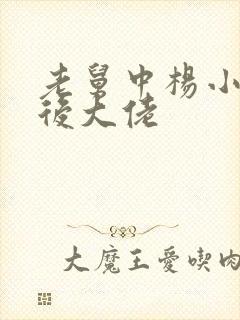 老舅中楊小
後大佬
大魔王愛喫肉